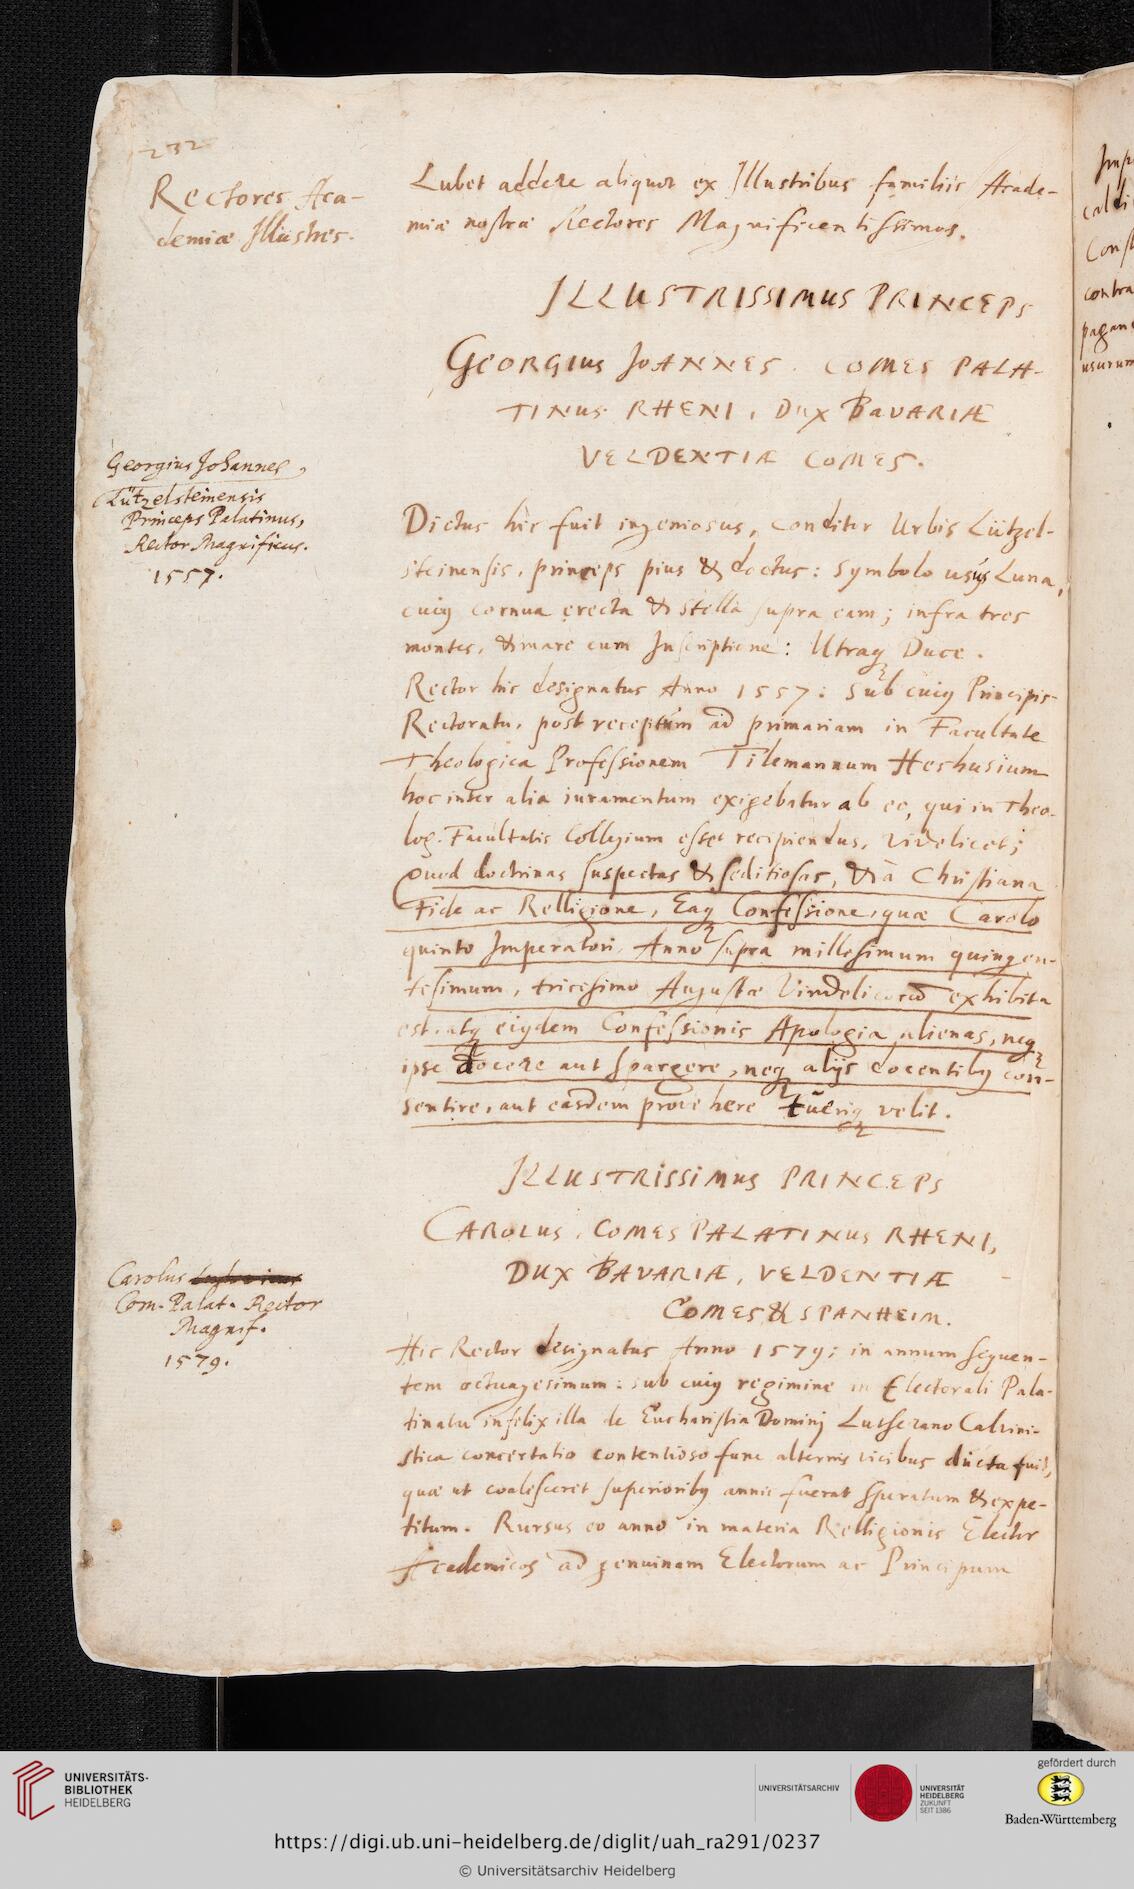 232
Rectores Aca-
demiæ Illustres.
Lubet addere aliquot ex Illustribus familiis Acade-
miæ nostræ Rectores Magnificentissimos.
ILLUSTRISSIMUS PRINCEPS
GEORGIUS JOANNES. COMES PALA-
TINUS RHENI, DUX BAVARIÆ
VELDENTIÆ COMES.
Georgius Johannes,
Lützelsteinensis
Princeps Palatinus,
Rector Magnificus.
1557.
Dictus hic fuit ingeniosus, Conditor Urbis Lützel-
steinensis, princeps pius & doctus: Symbolo usus Luna,
cuiꝯ cornua erecta & stella supra eam; infra tres
montes, & mare cum Inscriptione: Utraqꝫ Duce.
Rector hic designatus Anno 1557: Sub cuiꝯ Principis
Rectoratu, post receptum ad primariam in Facultate
Theologica Professionem Tilemannum Heshusium
hoc inter alia iuramentum exigebatur ab eo, qui in Theo-
log. Facultatis Collegium esset recipiendus, videlicet;
Quod doctrinas suspectas & seditiosas, & à Christiana
Fide ac Relligione, Eaqꝫ Confessione, quæ Carolo
quinto Imperatori, Anno supra millesimum quingen-
tesimum, tricesimo Augustæ Vindelicorū exhibita
est, atqꝫ eiꝯdem Confessionis Apologia alienas, neqꝫ
ipse docere aut spargere, neqꝫ alijs docentibꝯ con-
sentire, aut easdem provehere tueriqꝫ velit.
ILLUSTRISSIMUS PRINCEPS
CAROLUS, COMES PALATINUS RHENI,
DUX BAVARIÆ, VELDENTIÆ
COMES & SPANHEIM.
Carolus
Com. Palat. Rector
Magnif.
1579.
Hic Rector designatus Anno 1579; in annum sequen-
tem octuagesimum: sub cuiꝯ regimine in Electorali Pala-
tinatu infelix illa de Eucharistia Dominj Lutherano Calvini-
stica concertatio contentioso fune alternis vicibus ducta fuit,
quæ ut coalesceret superioribꝯ annis fuerat speratum & expe-
titum. Rursus eo anno in materia Relligionis Elector
Academicos ad genuinam Electorum ac Principum
UNIVERSITÄTS-
BIBLIOTHEK
HEIDELBERG
UNIVERSITÄTSARCHIV
UNIVERSITÄT
HEIDELBERG
ZUKUNFT
SEIT 1386
gefördert durch
Baden-Württemberg
https://digi.ub.uni-heidelberg.de/diglit/uah_ra291/0237
© Universitätsarchiv Heidelberg